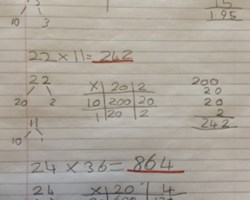 13
10 3
15
195
22 x 11 = 242
22
20 2
11
10 1
x 20 2
10 200 20
1 20 2
200
20
20
2
242
24 x 36 = 864
24 x 20 4